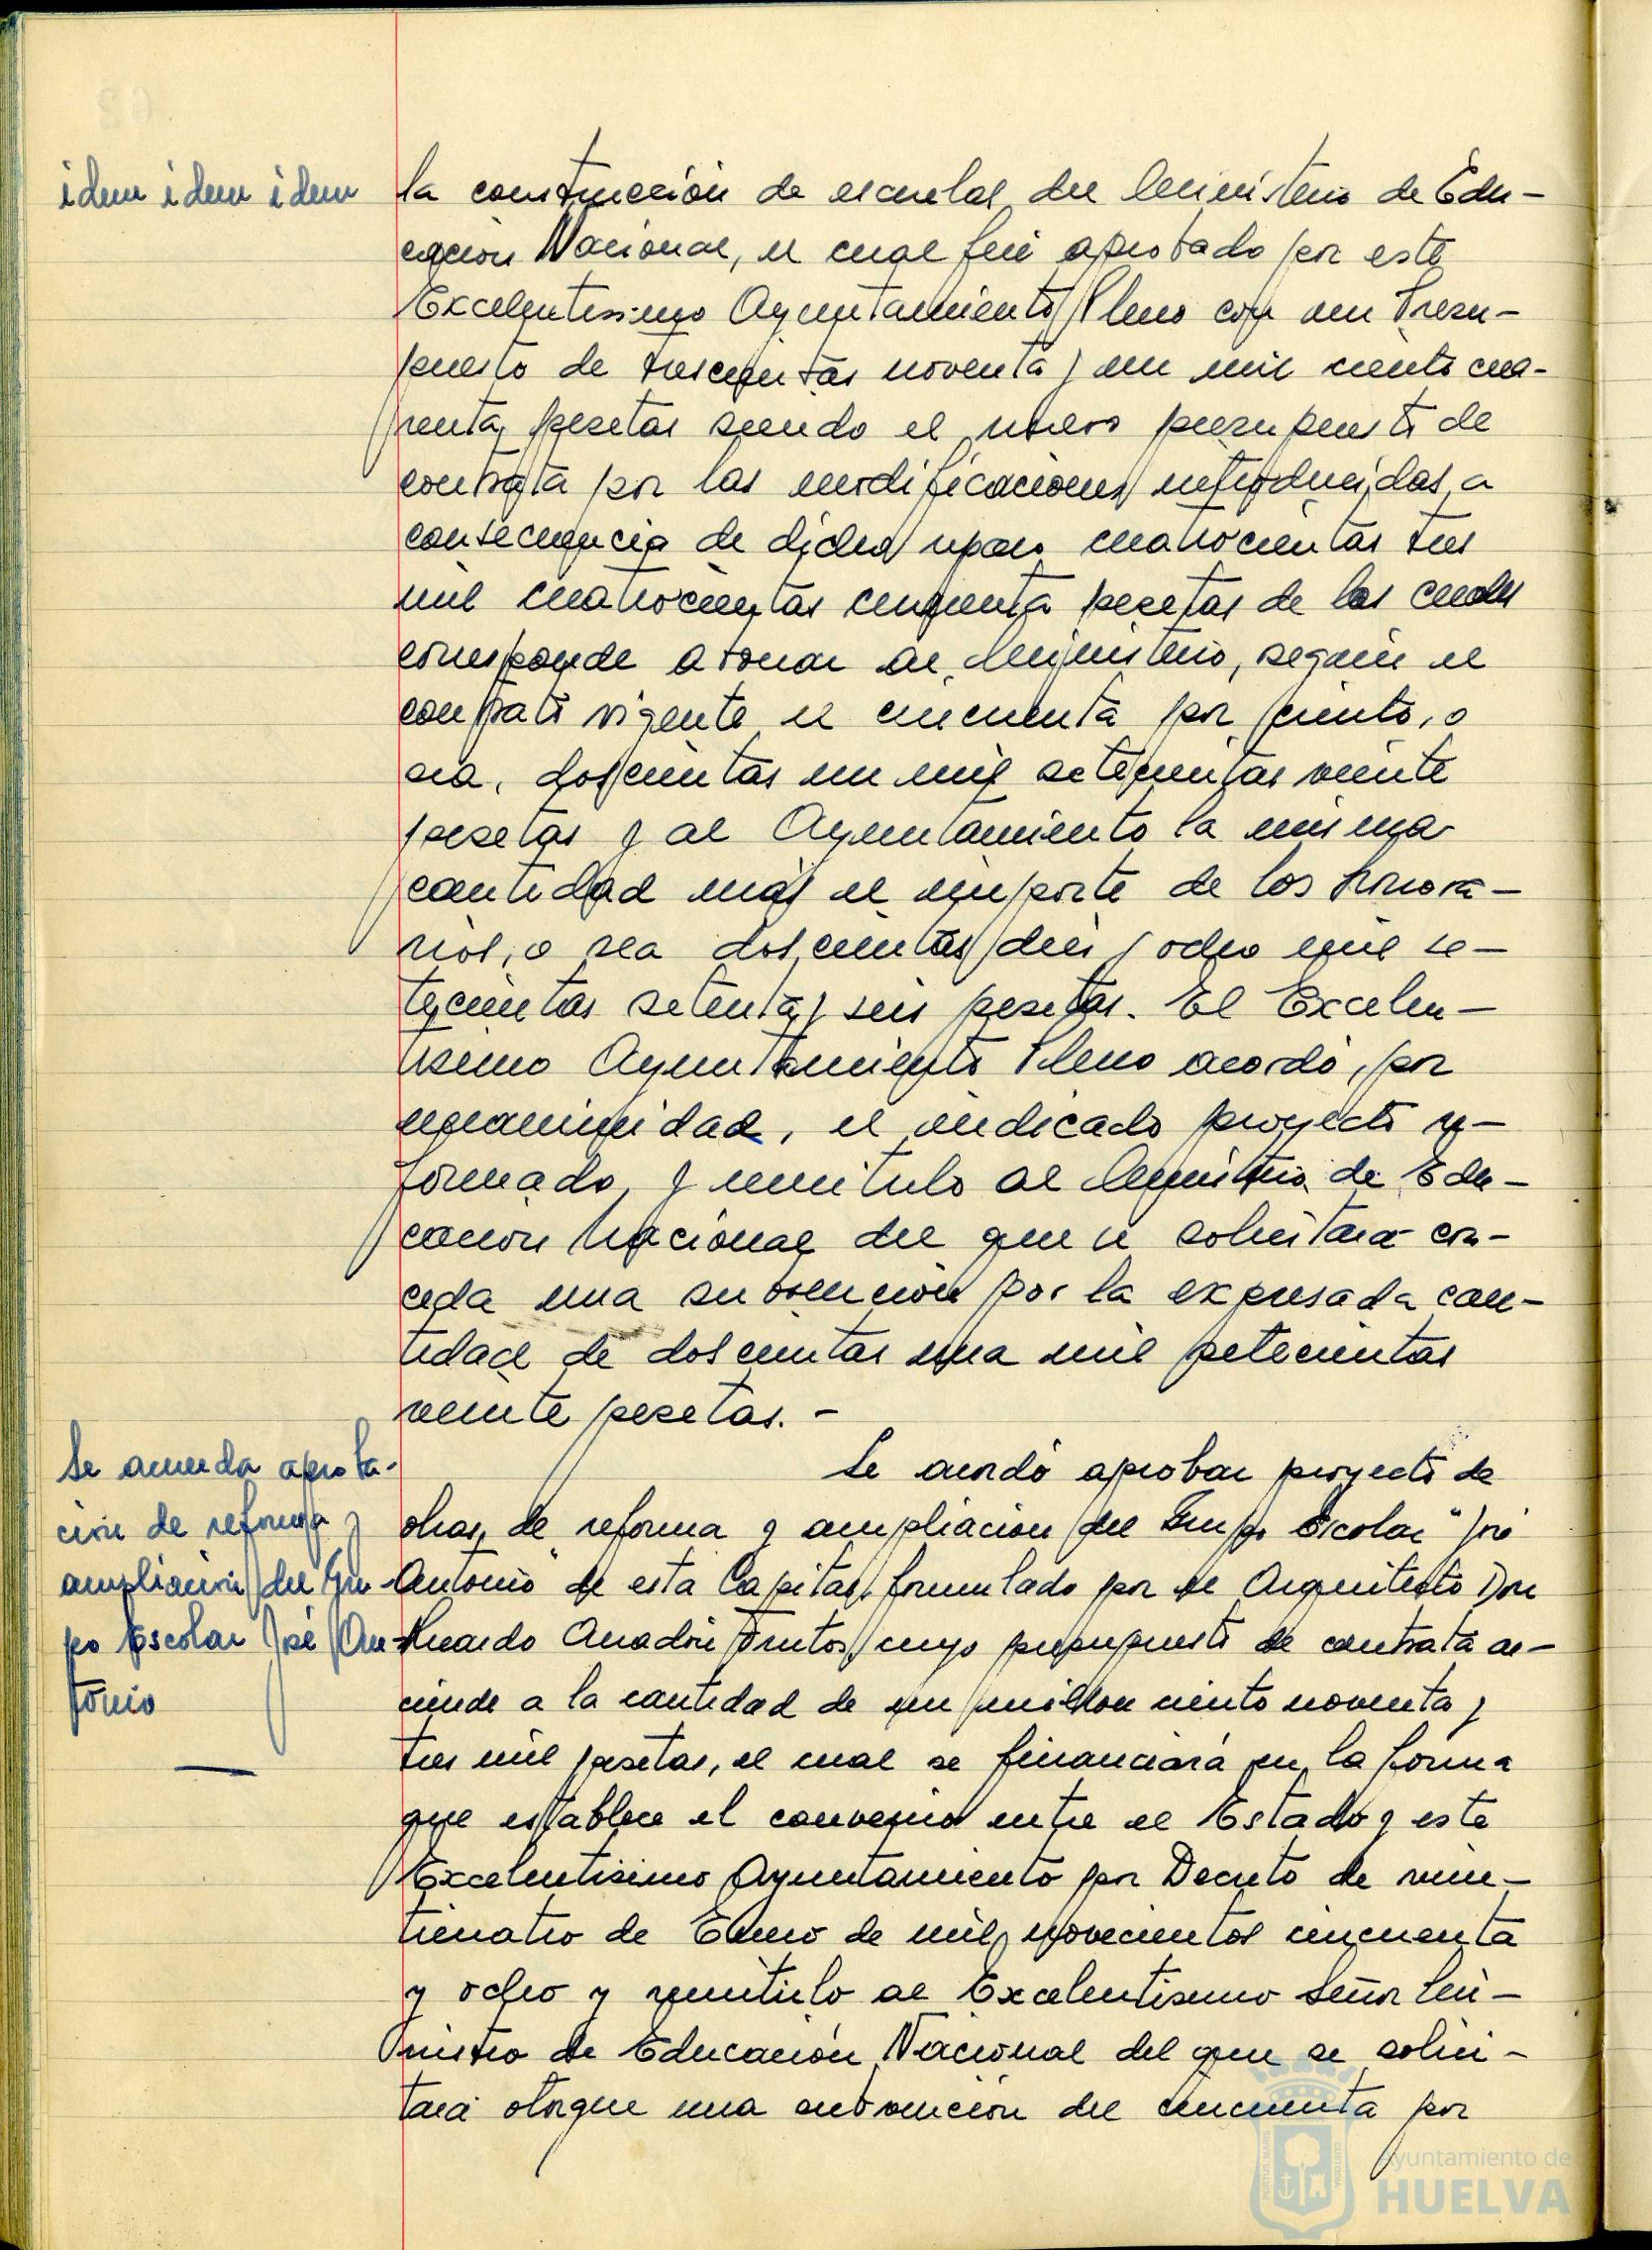 idem idem idem
la construcción de escuelas del Ministerio de Edu-
cación Nacional, el cual fué aprobado por este
Excelentissimo Ayuntamiento Pleno con un Presu-
puesto de trescientas noventa y un mil ciento cua-
renta, pesetas siendo el nuevo presupuesto de
contrata por las modificaciones introducidas, a
consecuencia de dicho reparo cuatrocientas tres
mil cuatrocientas cuarenta pesetas de las cuales
corresponde abonar al Ministerio, según el
contrato vigente el cincuenta por ciento, o
sea, doscientas un mil setecientas veinte
pesetas y al Ayuntamiento la misma
cantidad más el importe de los honora-
rios, o sea doscientas diez y ocho mil se-
tecientas setenta y seis pesetas. El Excelen-
tisimo Ayuntamiento Pleno acordó, por
unanimidad, el indicado proyecto re-
formado, y remitirlo al Ministerio de Edu-
cación Nacional del que se solicitará con-
ceda una subvención por la expresada can-
tidad de doscientas una mil setecientas
veinte pesetas. -
Se acuerda aproba-
ción de reforma y
ampliación del Gru-
po Escolar José An-
tonio
Se acordó aprobar proyecto de
obras, de reforma y ampliación del Grupo Escolar "José
Antonio" de esta Capital, formulado por el Arquitecto Don
Ricardo Anadón Frutos, cuyo presupuesto de contrata as-
ciende a la cantidad de un millon ciento noventa y
tres mil pesetas, el cual se financiará en la forma
que establece el convenio entre el Estado y este
Excelentisimo Ayuntamiento por Decreto de vein-
ticuatro de Enero de mil novecientos cincuenta
y ocho y remitirlo al Excelentisimo Señor Mi-
nistro de Educación Nacional del que se solici-
tará otorgue una subvención del cincuenta por
Ayuntamiento de
HUELVA